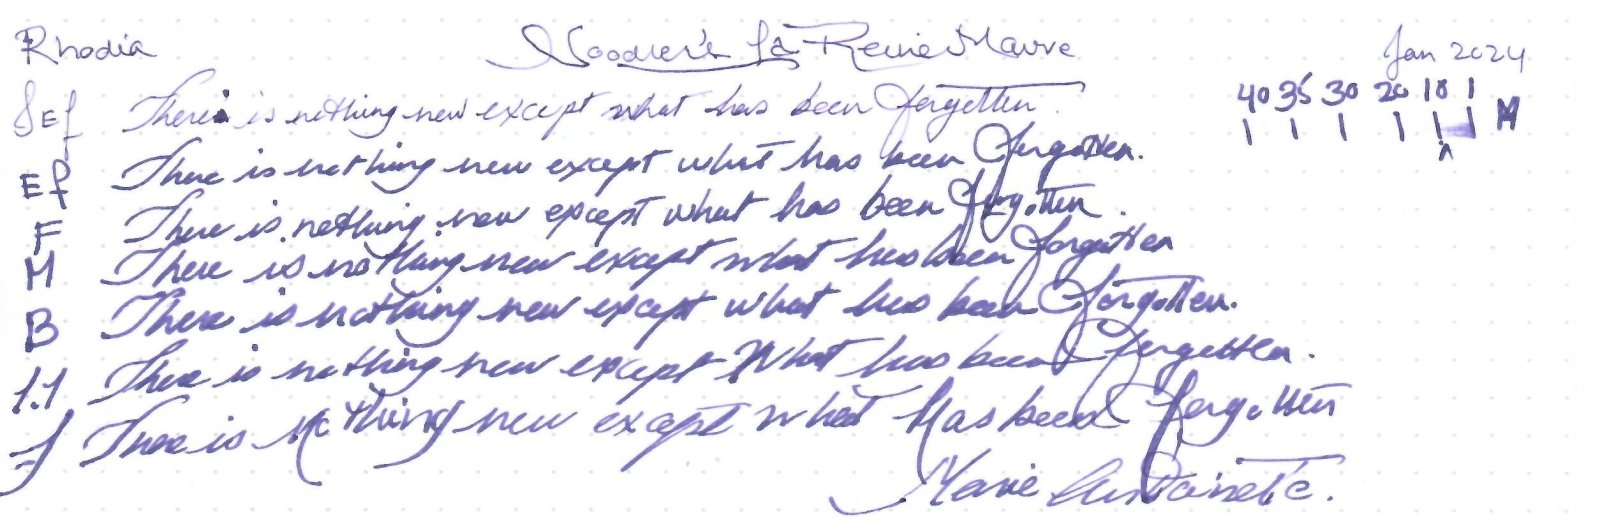 Rhodia Noodler's La Reine Mauve Jan 2024
40 35 30 20 10 1 M
SEf There is nothing new except what has been forgotten.
Ef There is nothing new except what has been forgotten.
F There is nothing new except what has been forgotten.
M There is nothing new except what has been forgotten
B There is nothing new except what has been forgotten.
1.1 There is nothing new except What has been forgotten.
f There is nothing new except what has been forgotten
Marie Antoinette.